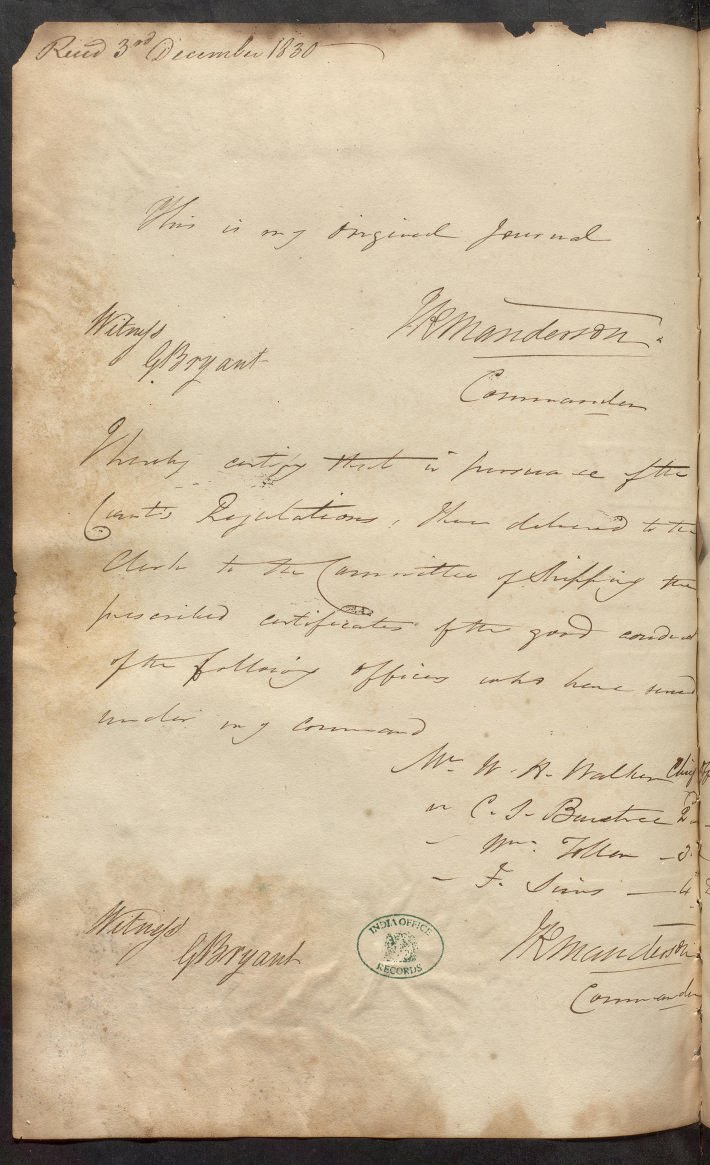 Recd 3rd December 1830
This is my original Journal
Witness
GBryant
JHManderson
Commander
I hereby certify that in pursuance of the
Courts Regulations, I have delivered to the
Clerk to the Committee of Shipping the
prescribed certificates of the good conduct
of the following officers who have served
under my command
Mr. W. H. Walker Chief
" C. S. 2d
- Wm. Toller - 3d
- F. Sims - 4
Witness
GBryant
INDIA OFFICE
RECORDS
JHManderson
Commander